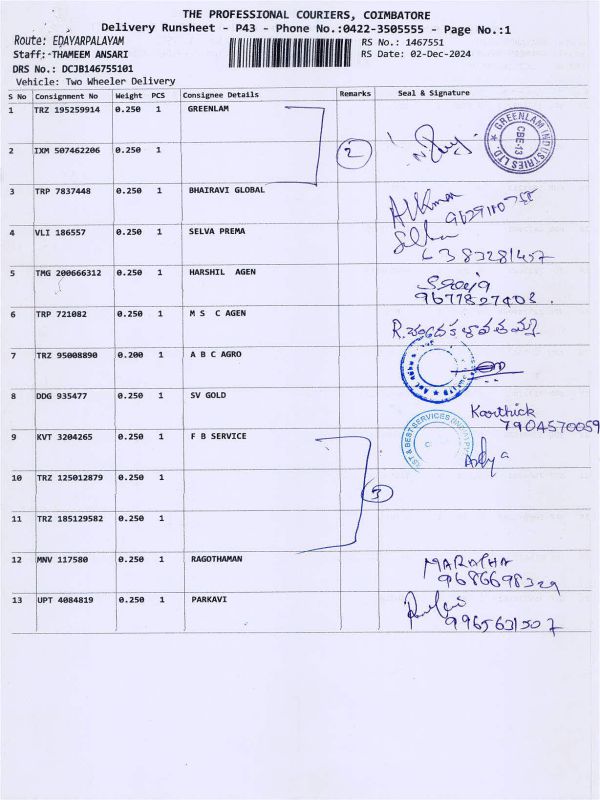 THE PROFESSIONAL COURIERS, COIMBATORE
Delivery Runsheet - P43 - Phone No.:0422-3505555 - Page No.:1
Route: EDAYARPALAYAM
RS No.: 1467551
Staff: THAMEEM ANSARI
RS Date: 02-Dec-2024
DRS No.: DCJB146755101
Vehicle: Two Wheeler Delivery
S No Consignment No Weight PCS Consignee Details Remarks Seal & Signature
1 TRZ 195259914 0.250 1 GREENLAM
GREENLAM INDUSTRIES LTD. ★
CBE-13
2 IXM 507462206 0.250 1
2
3 TRP 7837448 0.250 1 BHAIRAVI GLOBAL
4 VLI 186557 0.250 1 SELVA PREMA
6383281457
5 TMG 200666312 0.250 1 HARSHIL AGEN
9677827403
6 TRP 721082 0.250 1 M S C AGEN
7 TRZ 95008890 0.200 1 A B C AGRO
8 DDG 935477 0.250 1 SV GOLD
Karthick
7904570059
9 KVT 3204265 0.250 1 F B SERVICE
& BEST SERVICES
10 TRZ 125012879 0.250 1
3
11 TRZ 185129582 0.250 1
12 MNV 117580 0.250 1 RAGOTHAMAN
9686698329
13 UPT 4084819 0.250 1 PARKAVI
9965631507